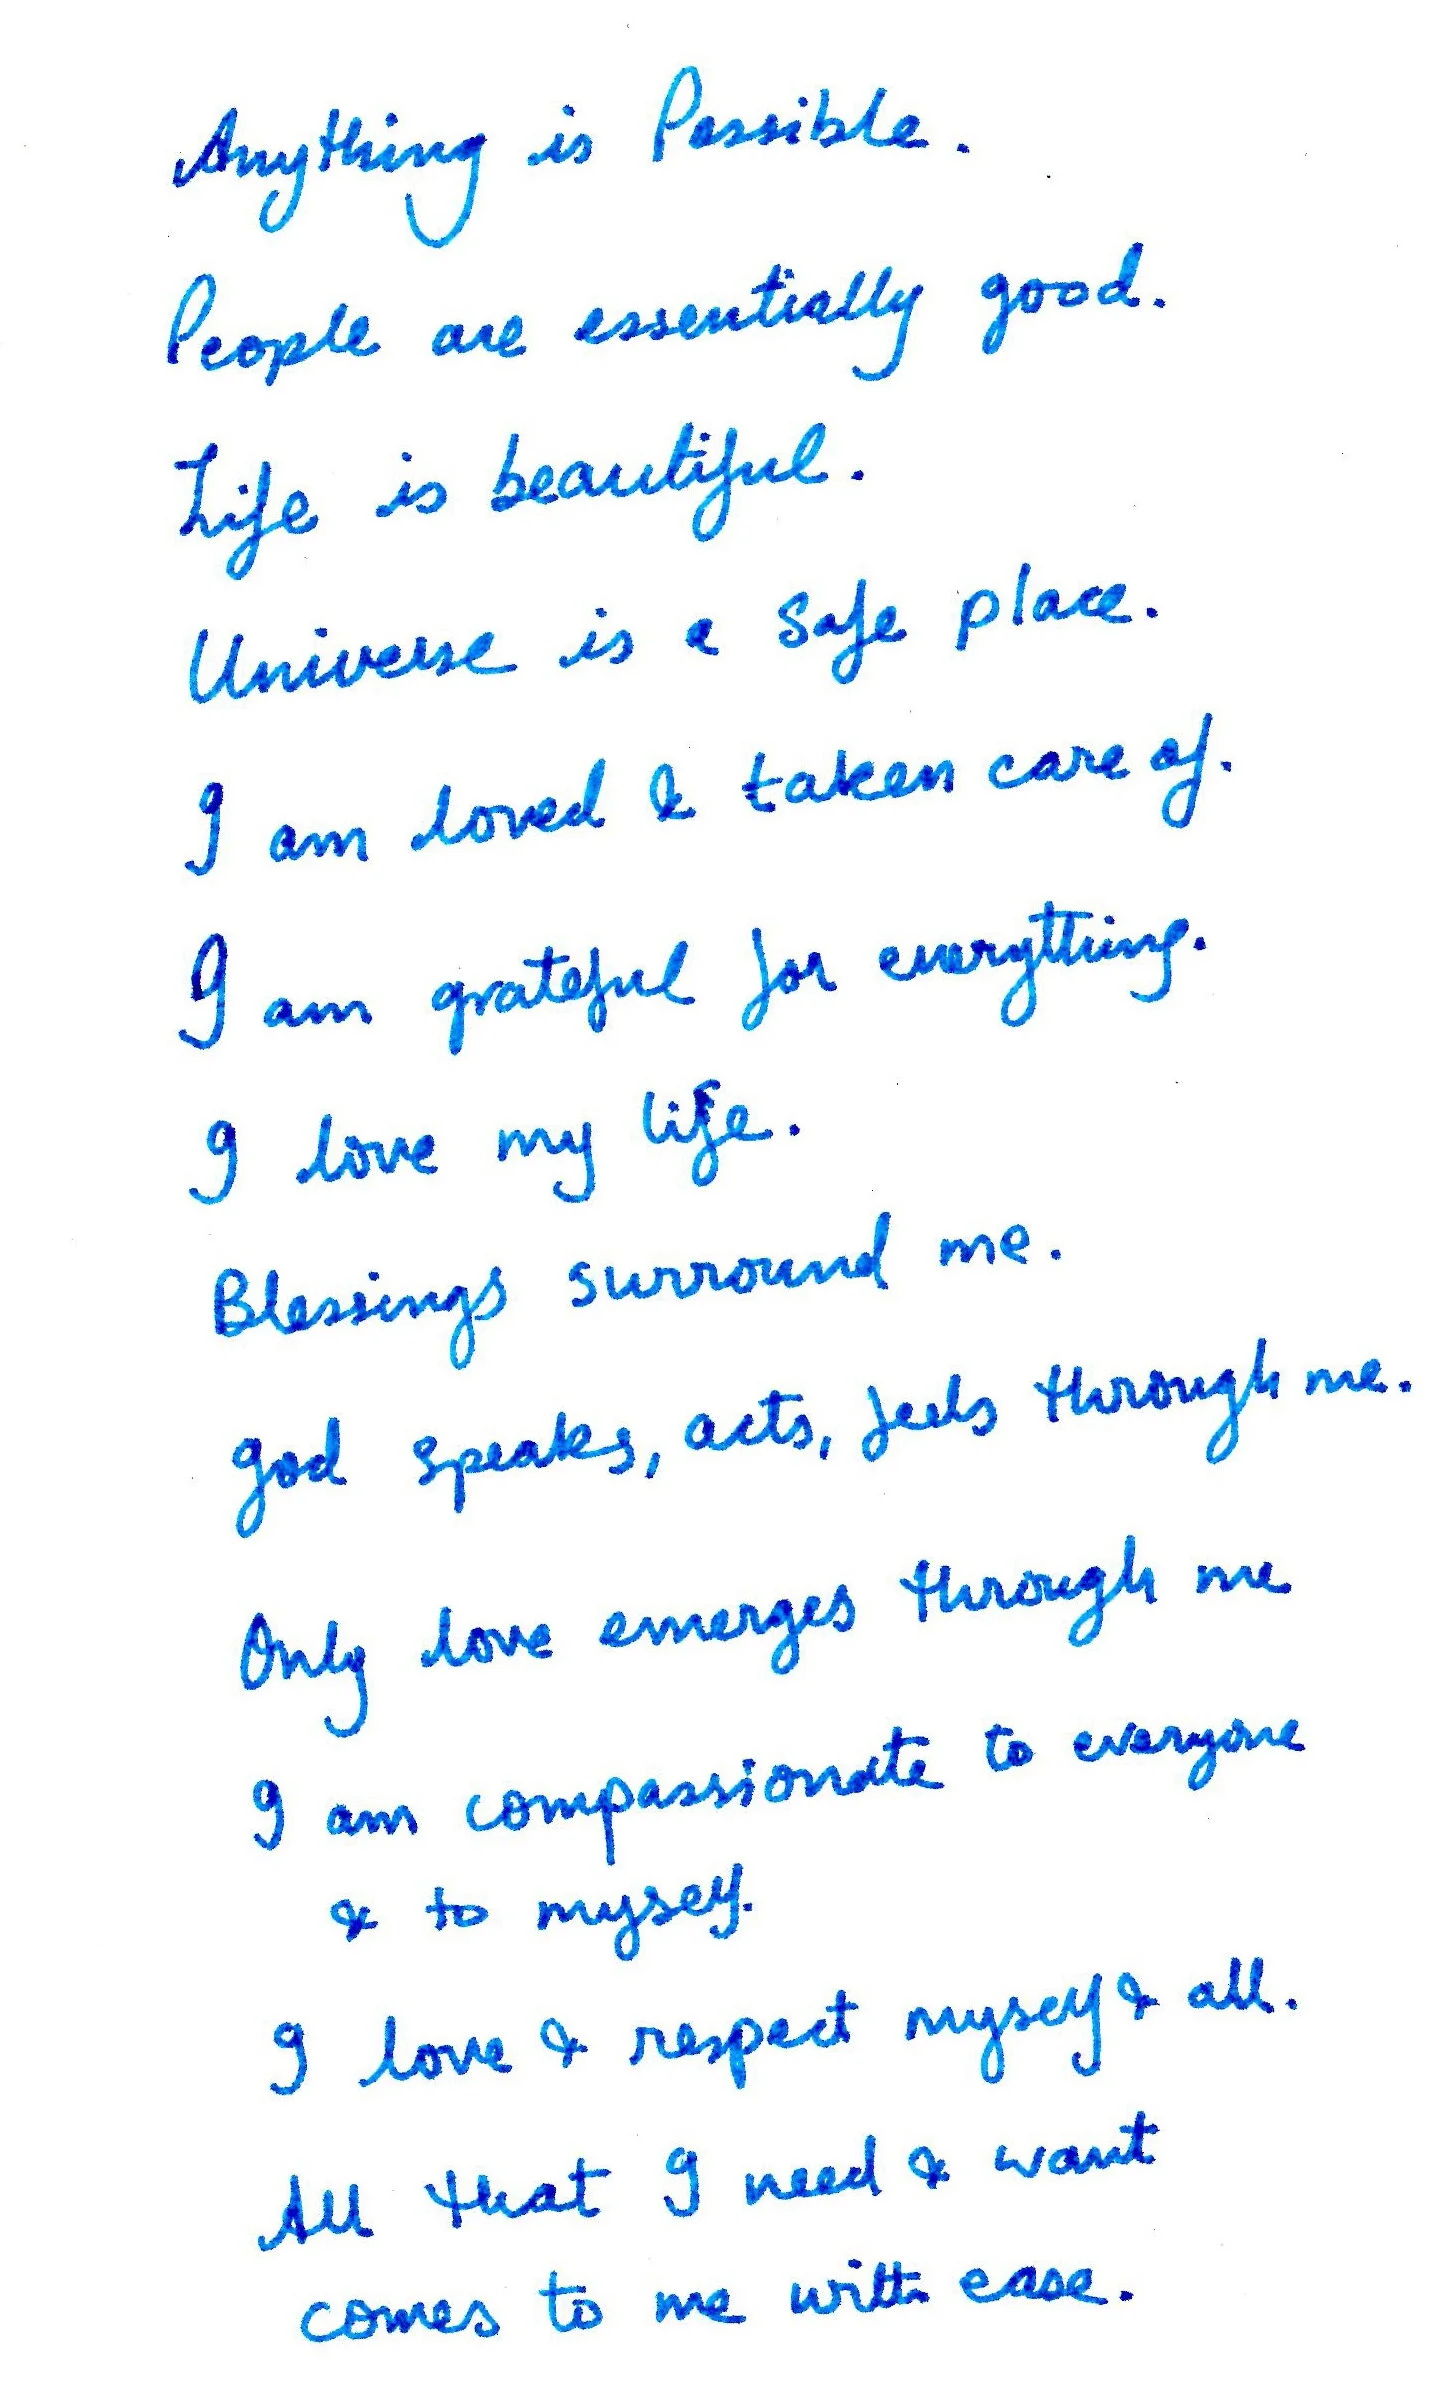 Anything is Possible.
People are essentially good.
Life is beautiful.
Universe is a safe place.
I am loved & taken care of.
I am grateful for everything.
I love my life.
Blessings surround me.
God speaks, acts, feels through me.
Only love emerges through me
I am compassionate to everyone
& to myself.
I love & respect myself & all.
All that I need & want
comes to me with ease.